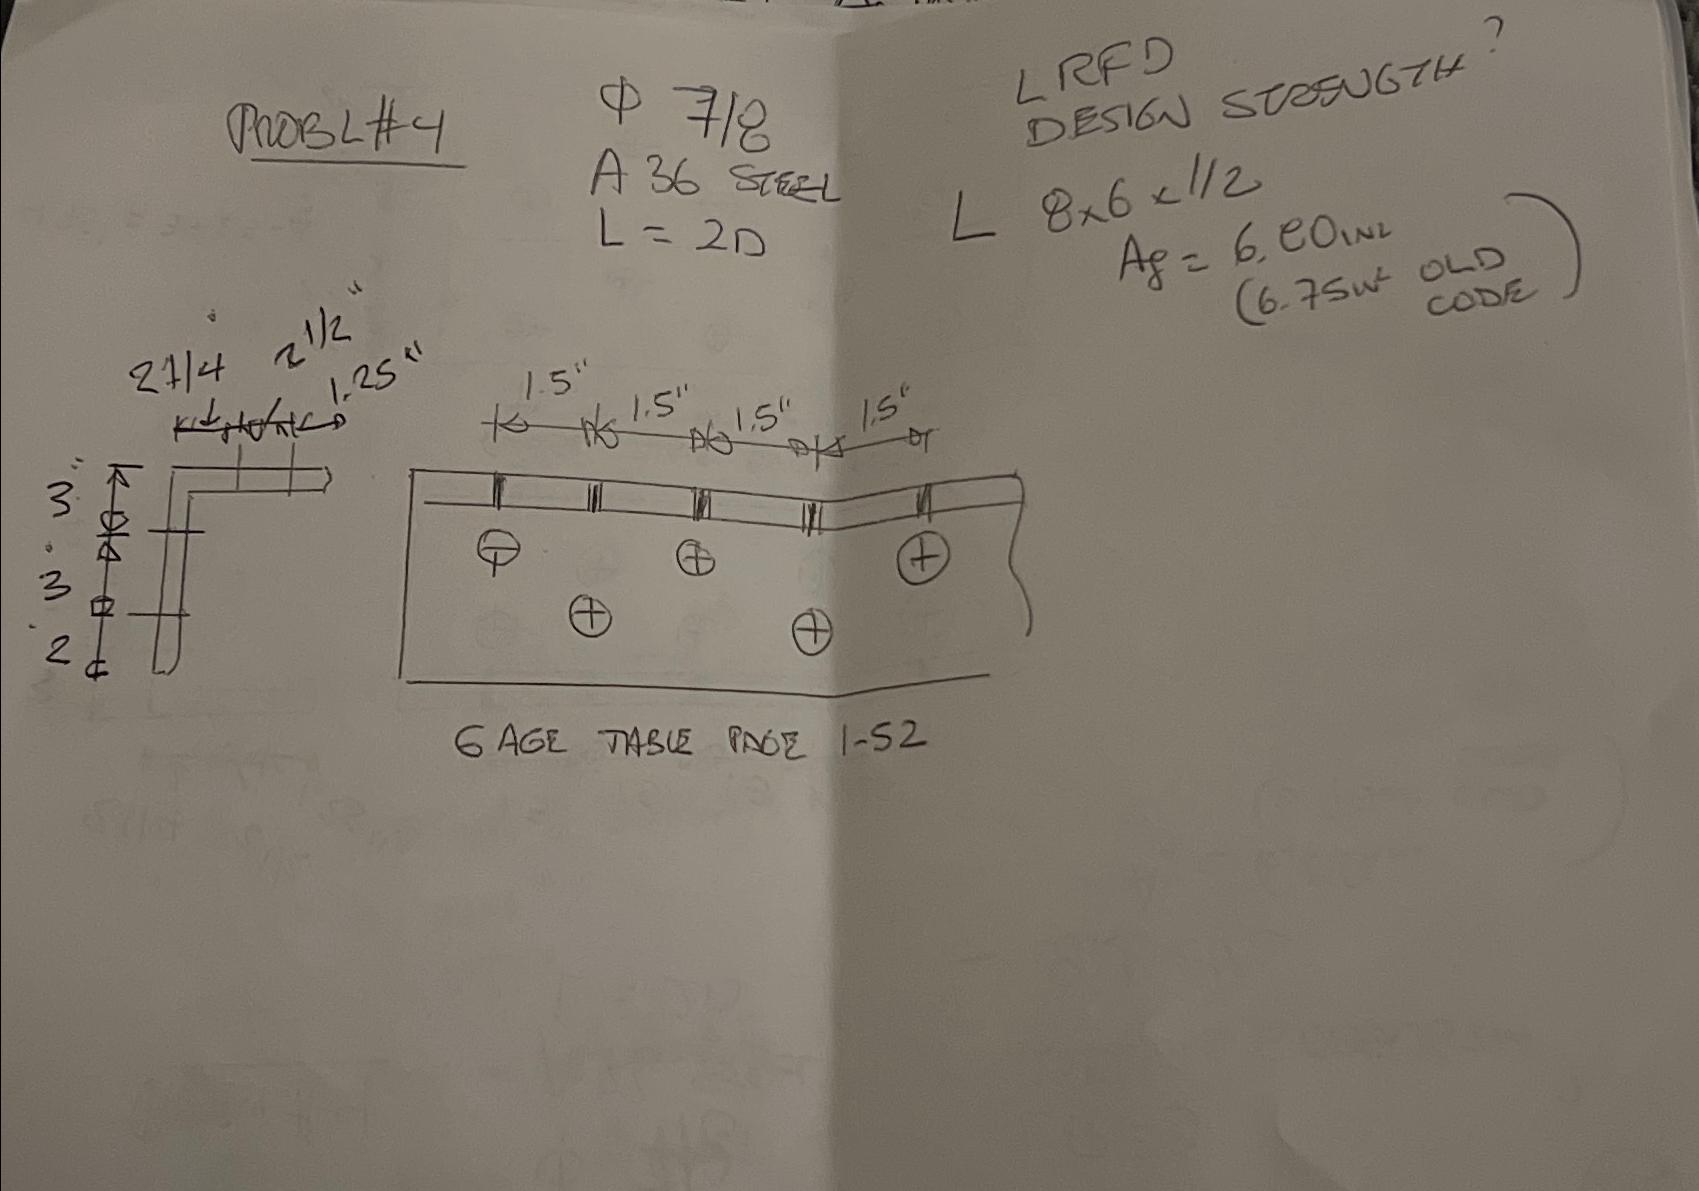 PROBL#4
Φ 7/8
A 36 STEEL
L = 2D
LRFD
DESIGN STRENGTH?
L 8x6x1/2
Ag = 6.80 IN2
(6.75 in² OLD
CODE)
2 1/4
2 1/2"
1.25"
3"
3
2
1.5"
1.5"
1.5"
1.5"
GAGE TABLE PAGE 1-52